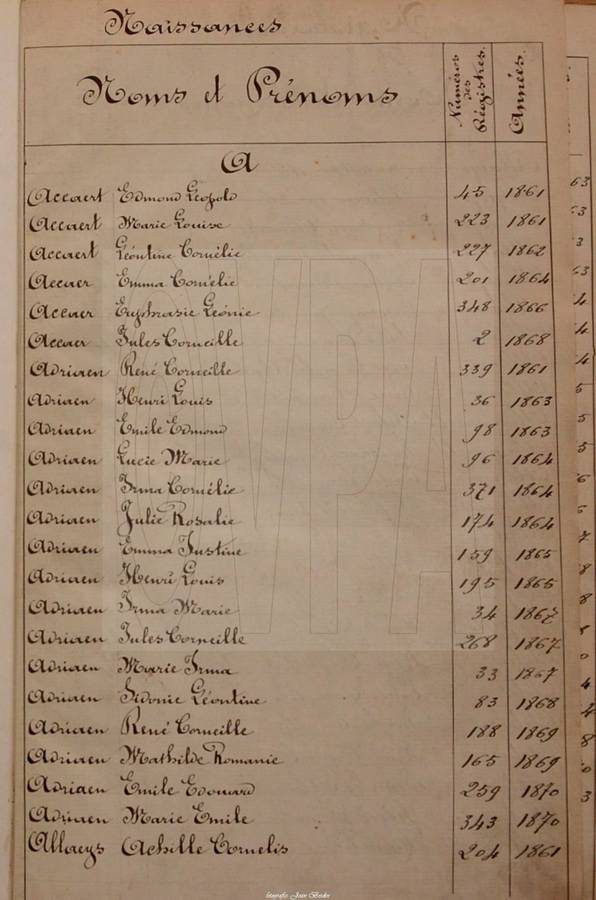 Naissances
Noms et Prénoms
Numéros des Régistres.
Années.
A
Accaert Edmond Léopold 45 1861
Accaert Marie Louise 223 1861
Accaert Léontine Cornélie 227 1862
Accaer Emma Cornélie 201 1864
Accaer Euphrasie Léonie 348 1866
Accaer Jules Corneille 2 1868
Adriaen René Corneille 339 1861
Adriaen Henri Louis 36 1863
Adriaen Emile Edmond 98 1863
Adriaen Lucie Marie 96 1864
Adriaen Irma Cornélie 371 1864
Adriaen Julie Rosalie 174 1864
Adriaen Emma Justine 159 1865
Adriaen Henri Louis 195 1865
Adriaen Irma Marie 34 1867
Adriaen Jules Corneille 268 1867
Adriaen Marie Irma 33 1867
Adriaen Sidonie Léontine 83 1868
Adriaen René Corneille 188 1869
Adriaen Mathilde Romanie 165 1869
Adriaen Emile Edouard 259 1870
Adriaen Marie Emile 343 1870
Allaeys Achille Cornelis 204 1861